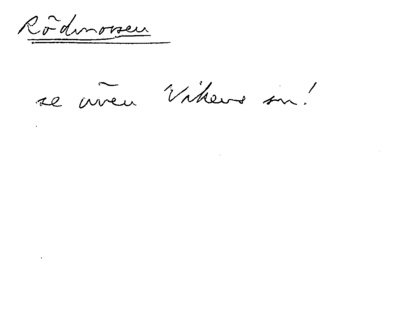 Rödmossen
se även Vikens sn!